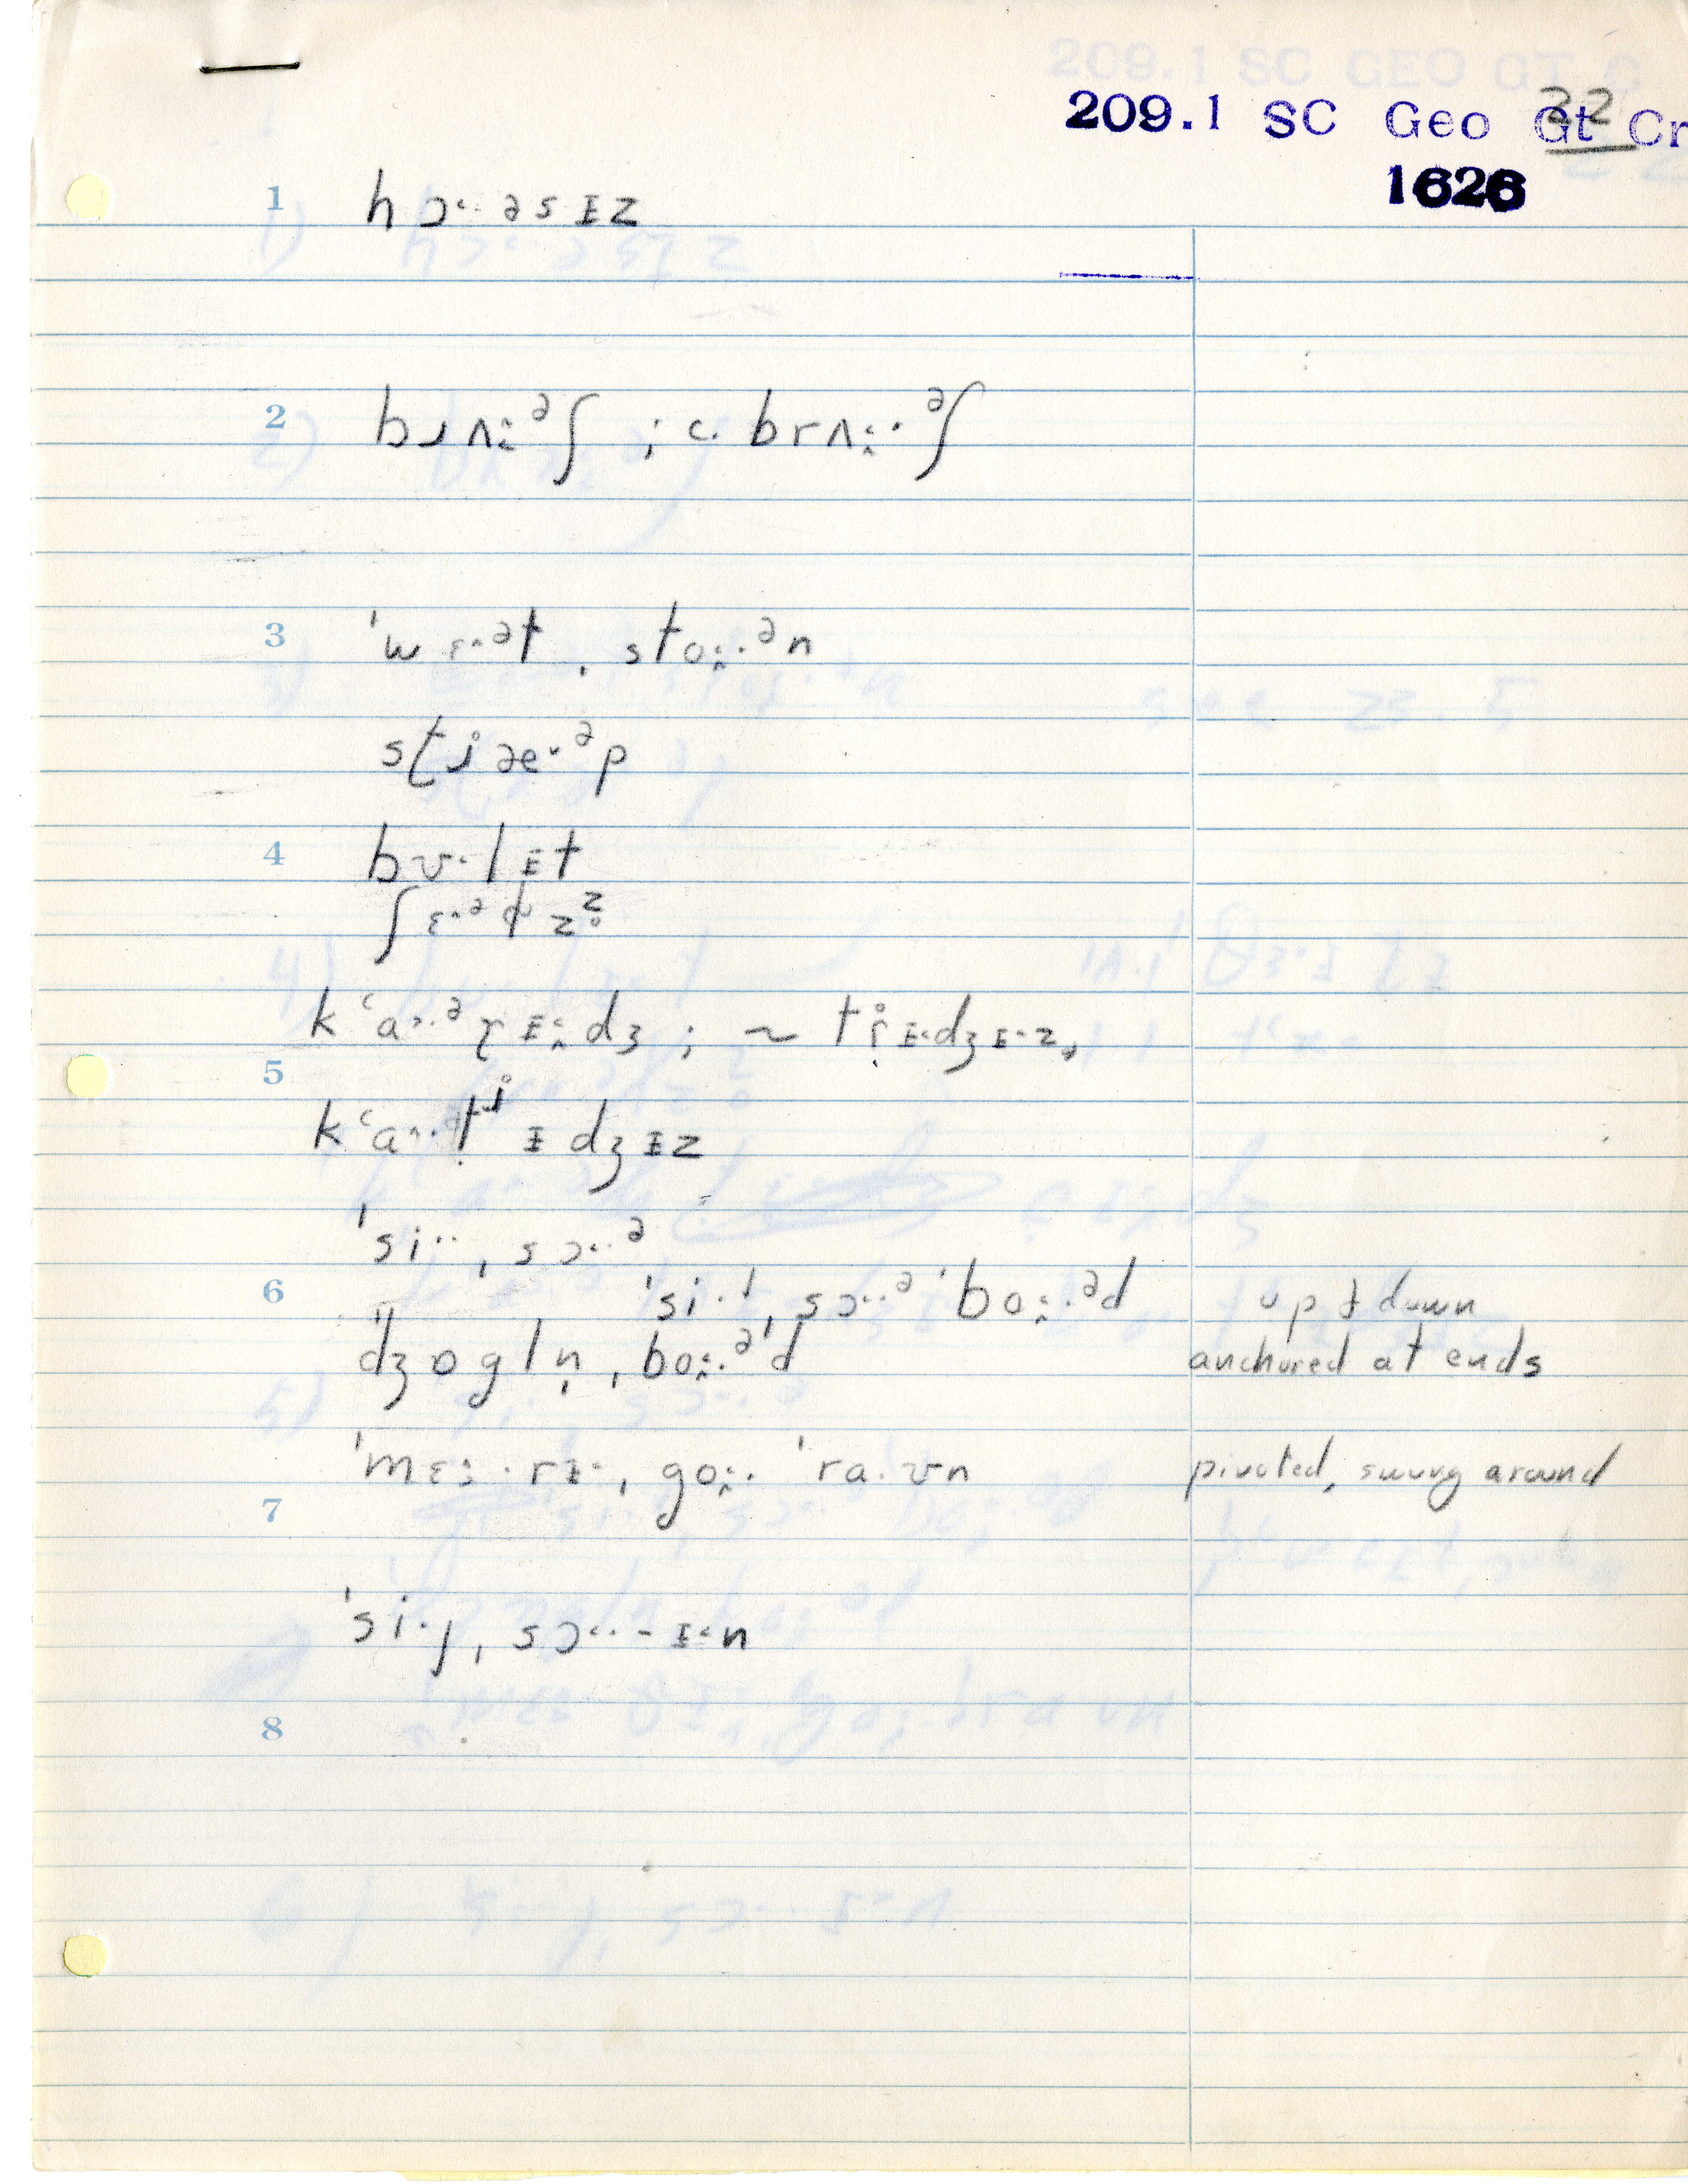 22
209.1 SC Geo Gt Cr
1626
1 hɔ˂·əsɪz
2 bɹʌ:ᵊʃ ; c. brʌ:·ᵊʃ
3 ˈwɛ^·ᵊt ˌsto:·ᵊn
stʲæ˅·ᵊp
4 bʊ·lɪt
ʃɛ^·ᵊɫzᶻ̥
kʻa^·ᵊɽɪ:dʒ ; ~ tɾ̥ɪ˂dʒɪ·z,
5
kʻa^·tʲɪdʒɪz
ˈsi·· ˌsɔ˂·ᵊ
6 ˈsi·ɨ ˌsɔ˂·ᵊ ˈbo:·ᵊd up & down
dʒɒgln̩ ˌbo:·ᵊd anchored at ends
ˈmɛ:·rɪ· ˌgo:· ˈra·ʊn pivoted, swung around
7
ˈsi·ɟ ˌsɔ˂·-ɪ˂n
8